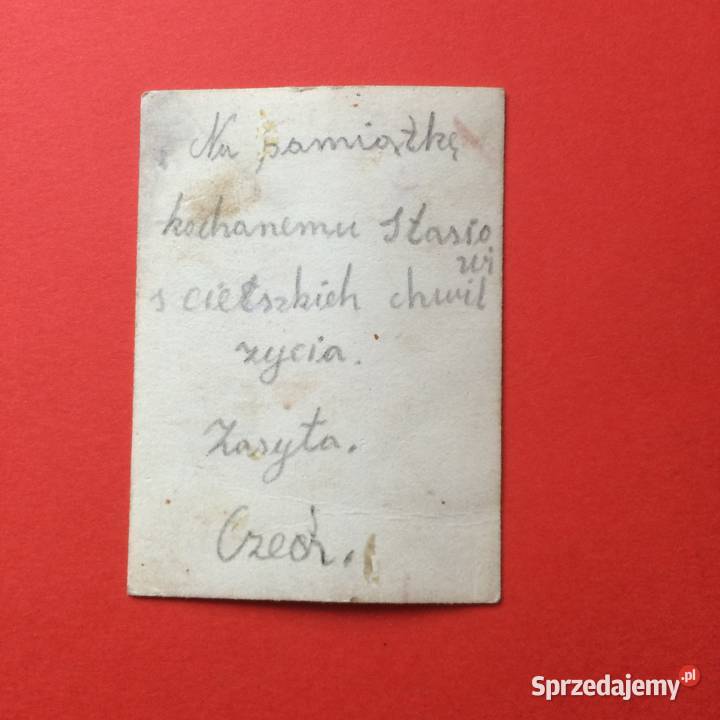 Na pamiątkę
kochanemu Stasio
wi
s cieższkich chwil
życia.
Zasyła.
Cześć.
Sprzedajemy.pl